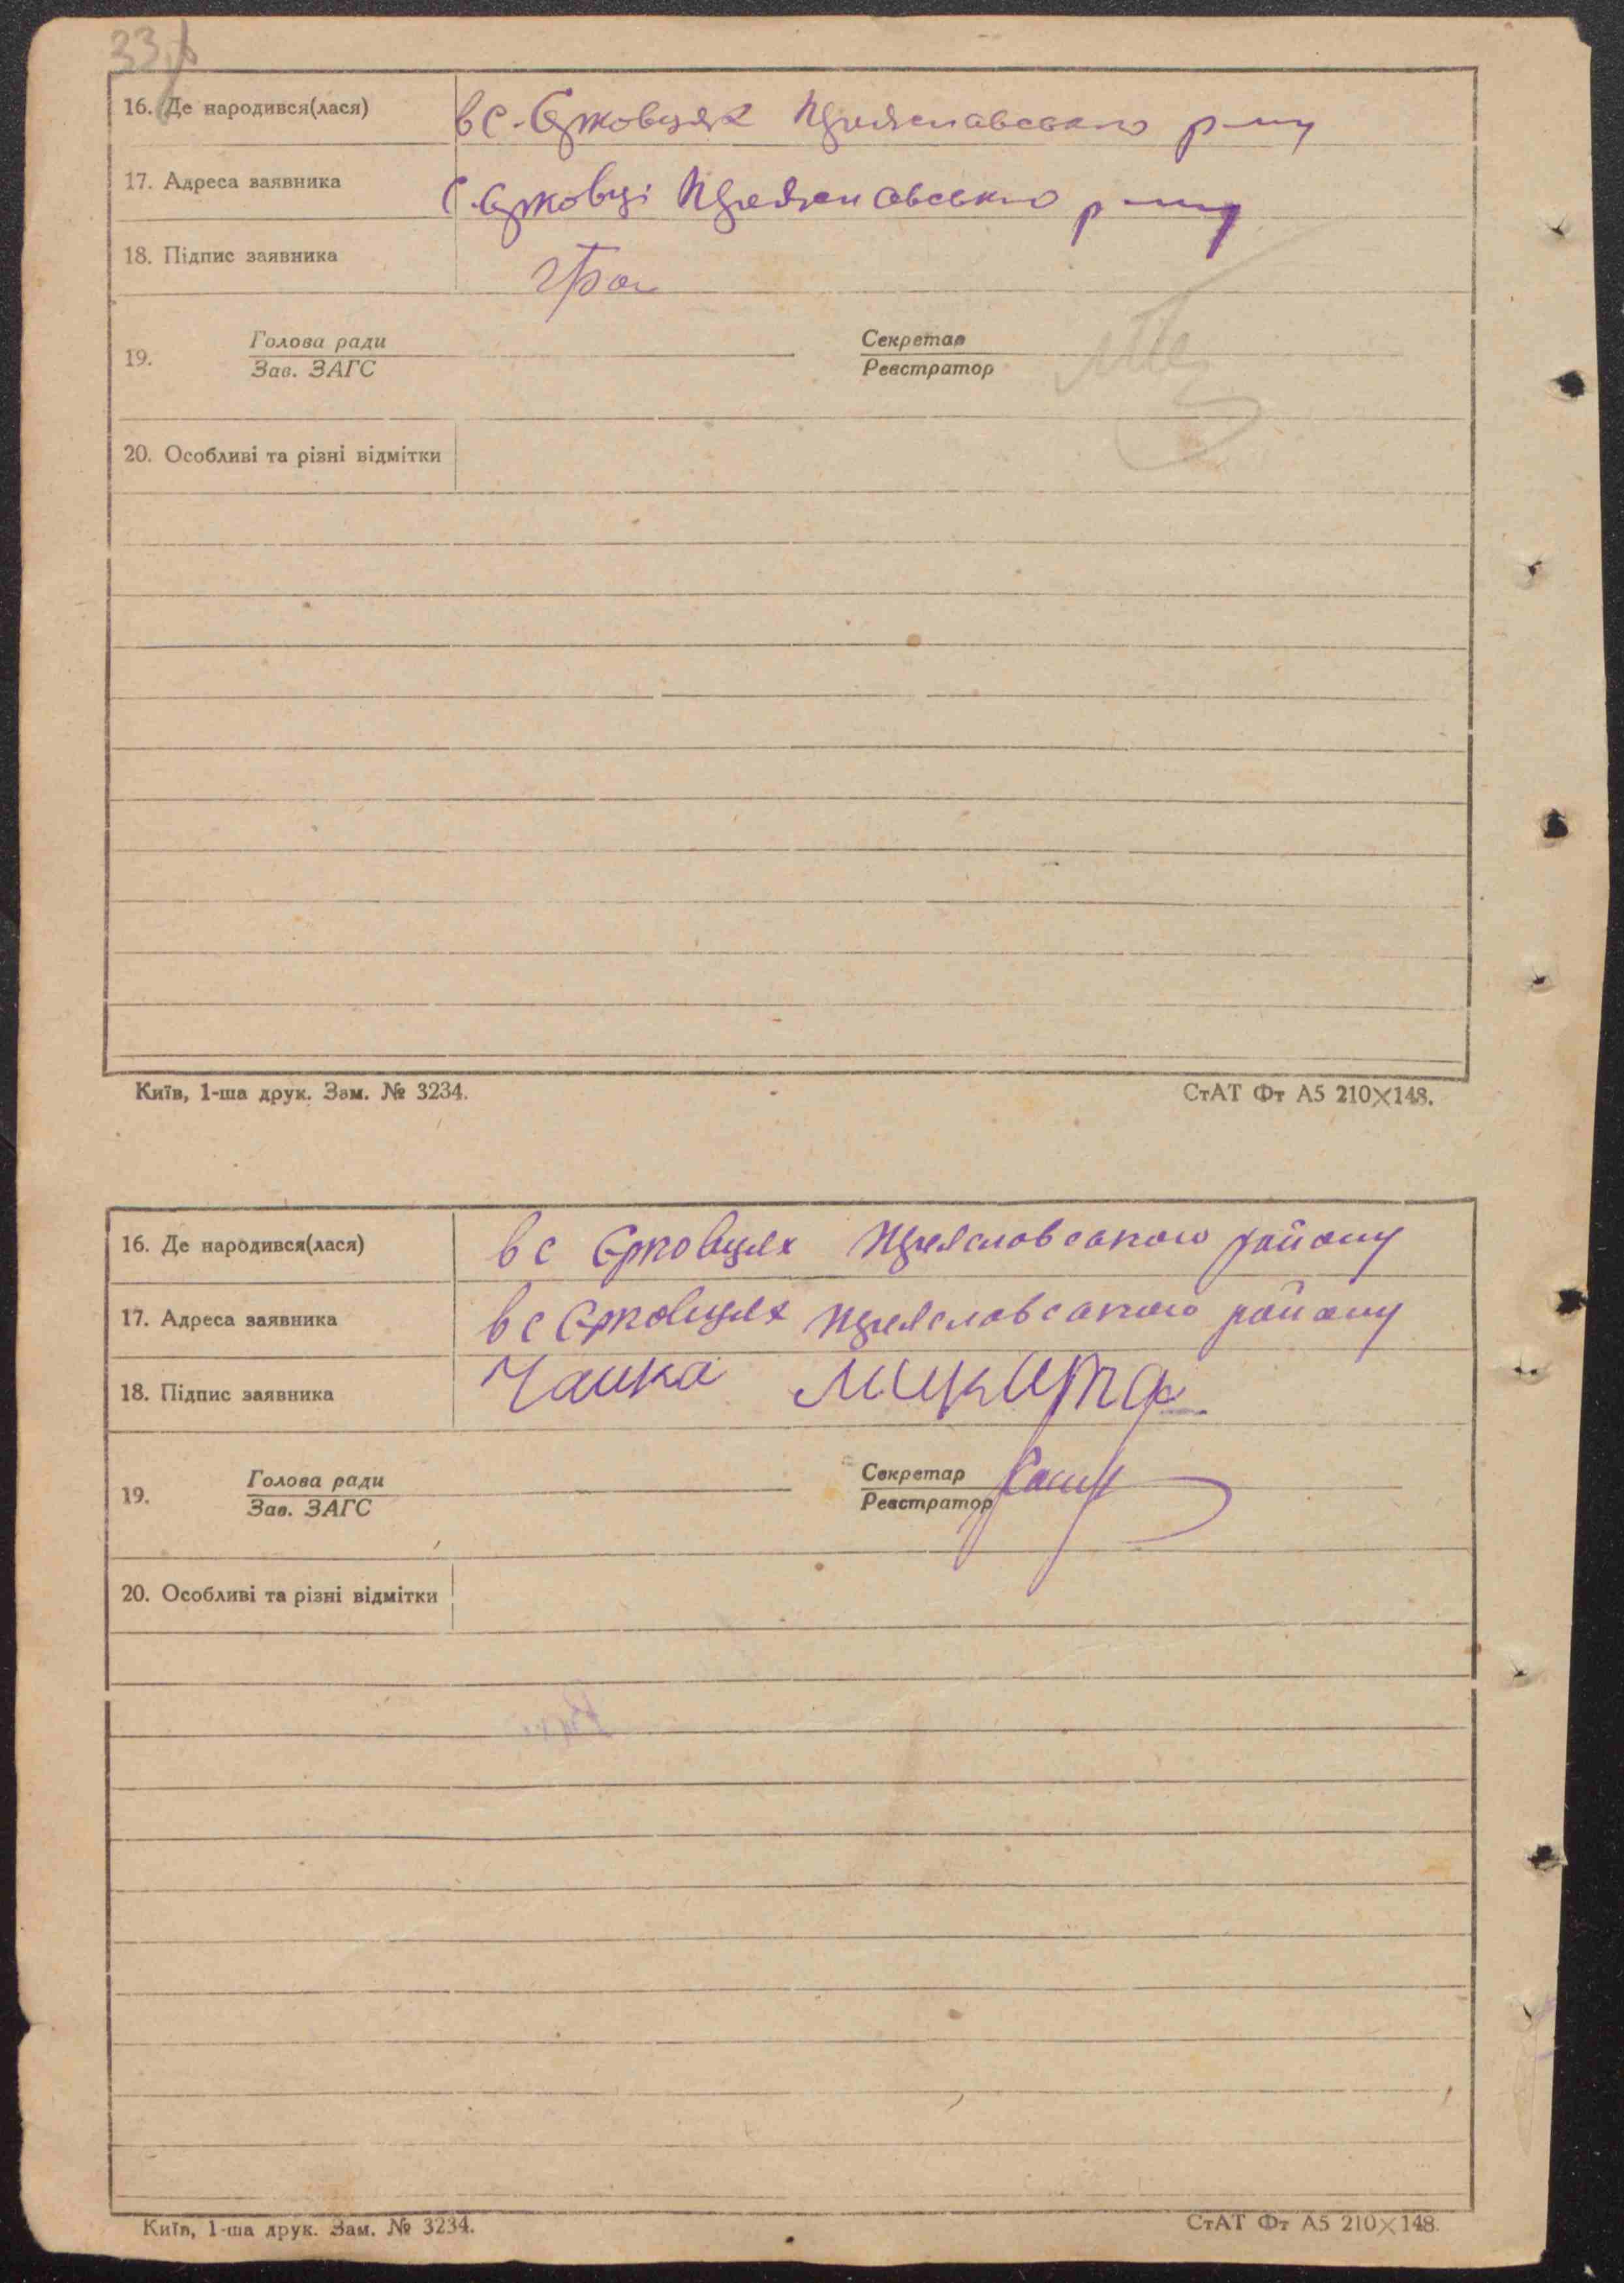 33
16. Де народився(лася) в с. Єрковцях Переяславського р-ну
17. Адреса заявника с. Єрковці Переяславського р-ну
18. Підпис заявника
19. Голова ради Секретар
Зав. ЗАГС Реєстратор
20. Особливі та різні відмітки
Київ, 1-ша друк. Зам. № 3234. СтАТ Фт А5 210×148.
16. Де народився(лася) в с Єрковцях Переяславського району
17. Адреса заявника в с Єрковцях Переяславського району
18. Підпис заявника Чаика Микита
19. Голова ради Секретар
Зав. ЗАГС Реєстратор
20. Особливі та різні відмітки
Київ, 1-ша друк. Зам. № 3234. СтАТ Фт А5 210×148.